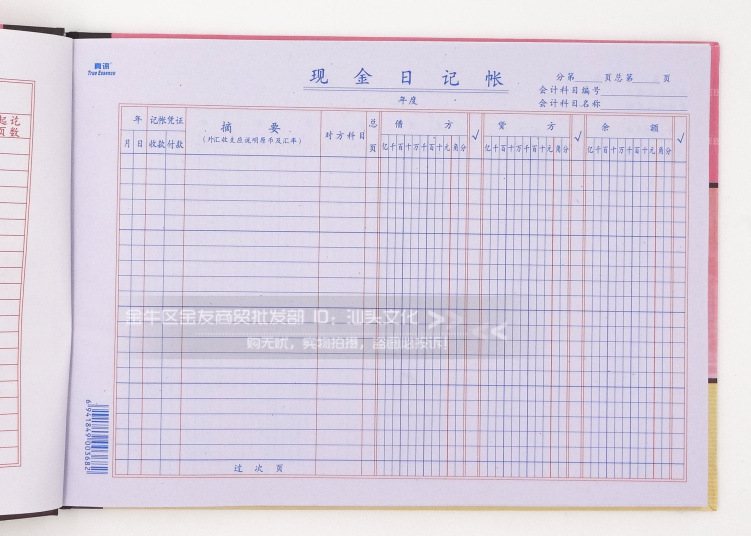 起讫
页数
真彩
True Essence
现金日记帐
年度
分第 页总第 页
会计科目编号
会计科目名称
年 记帐凭证 摘要 对方科目 总页 借方 √ 贷方 √ 余额 √
(外汇收支应说明原币及汇率)
月 日 收款 付款 亿千百十万千百十元角分 亿千百十万千百十元角分 亿千百十万千百十元角分
金牛区金友商贸批发部 ID：汕头文化
购无忧，实物拍摄，盗图必投诉!
过次页
6941849003682